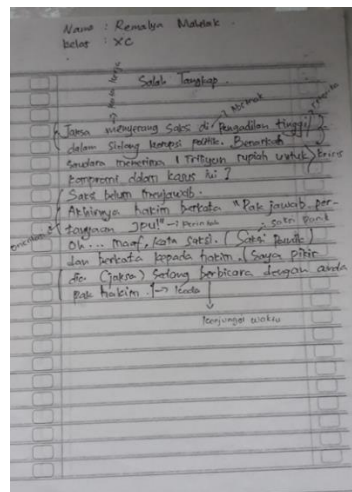 Nama : Remalya Malelak .
kelas : XC
Salah Tangkap
Normal
Jaksa menyerang saksi di Pengadilan tinggi
dalam sidang korupsi politik. Benarkah
saudara menerima 1 Triliyun rupiah untuk krisis
kompromi dalam kasus ini ?
Saksi belum menjawab.
Akhirnya hakim berkata "Pak jawab per-
tanyaan JPU!" → Perintah
Oh... maaf, kata saksi. (Saksi panik) saksi panik
dan berkata kepada hakim. (Saya pikir
dia (jaksa) sedang berbicara dengan anda
pak hakim. → koda
konjungsi waktu